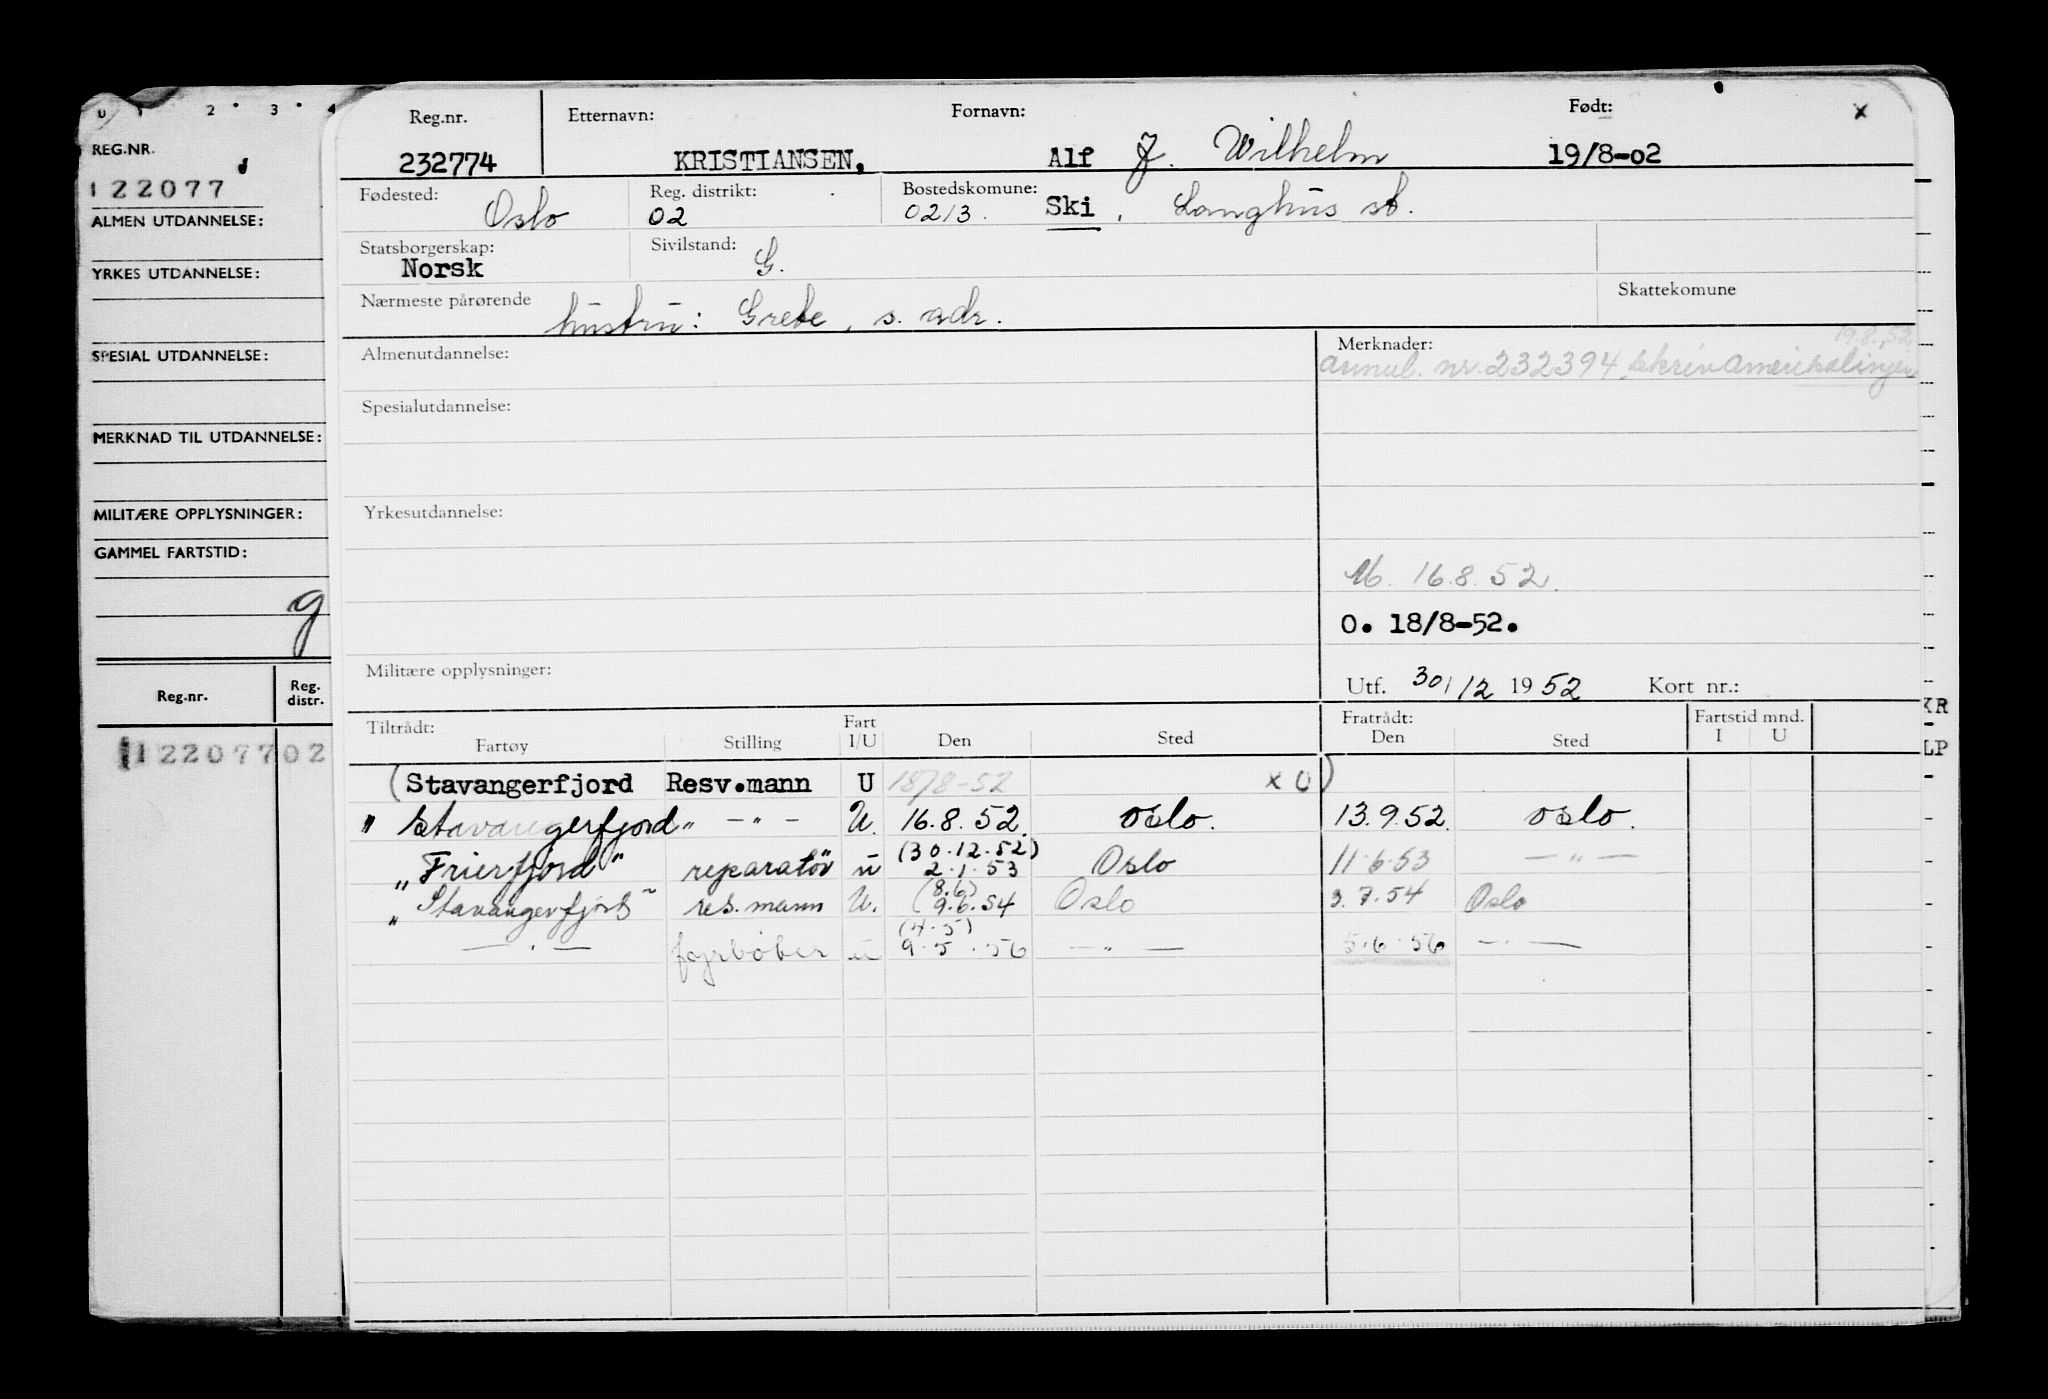 U 1 2 • 3 • 4
REG.NR.
122077
ALMEN UTDANNELSE:
YRKES UTDANNELSE:
SPESIAL UTDANNELSE:
MERKNAD TIL UTDANNELSE:
MILITÆRE OPPLYSNINGER:
GAMMEL FARTSTID:
g
Reg.nr. Reg. distr.
122077 02
Reg.nr. Etternavn: Fornavn: Født: x
232774 KRISTIANSEN, Alf J. Wilhelm 19/8-02
Fødested: Oslo Reg. distrikt: 02 Bostedskomune: 0213. Ski, Langhus st.
Statsborgerskap: Norsk Sivilstand: G.
Nærmeste pårørende hustru: Grete, s. adr. Skattekomune
Almenutdannelse: Merknader: 19.8.52
annul. nr. 232394, skriv Amerikalinjen
Spesialutdannelse:
Yrkesutdannelse:
M. 16.8.52.
O. 18/8-52.
Militære opplysninger: Utf. 30/12 1952 Kort nr.:
Tiltrådt: Fart Fratrådt: Fartstid mnd.
Fartøy Stilling I/U Den Sted Den Sted I U
KR
LP
(Stavangerfjord Resv.mann U 18/8-52 x O)
" Stavangerfjord " - " - U. 16.8.52. Oslo. 13.9.52. Oslo.
(30.12.52)
"Frierfjord" reparatør u 2.1.53 Oslo 11.6.53 — " —
(8.6)
"Stavangerfjord" res.mann U. 9.6.54 Oslo 3.7.54 Oslo
(4.5)
— " — fyrbøter u 9.5.56 — " — 5.6.56 — " —